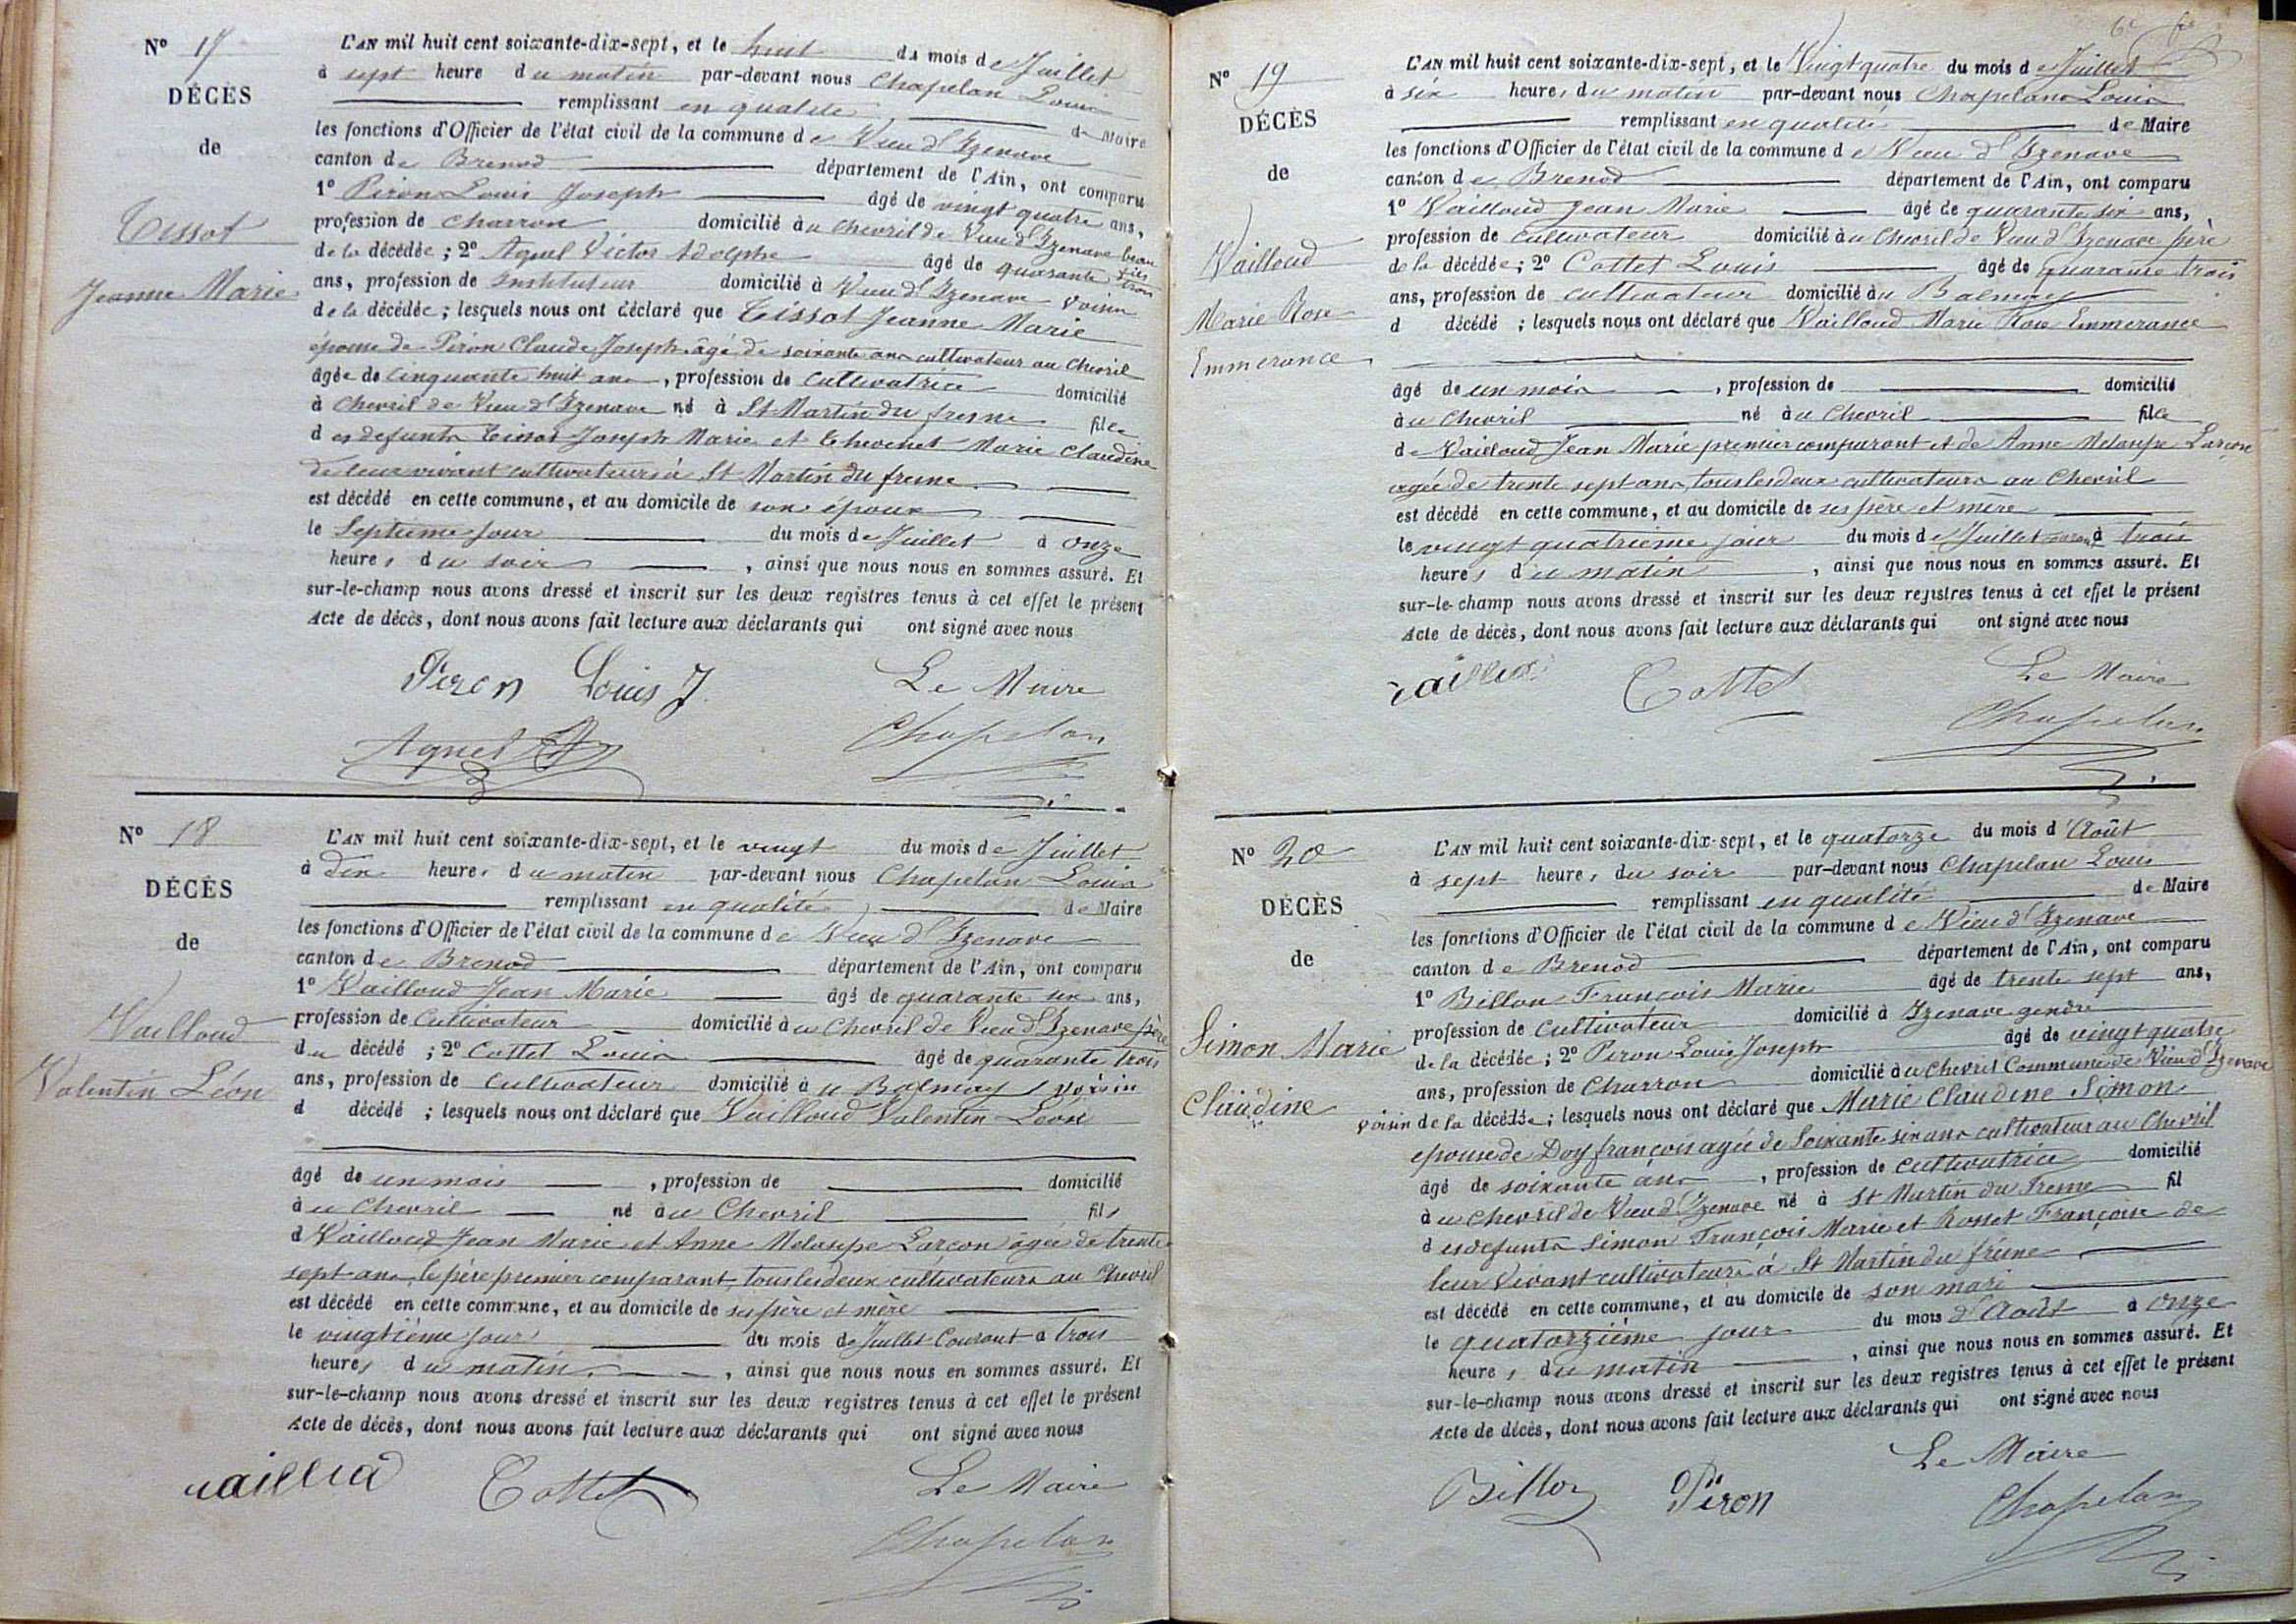 N° 17
DÉCÈS
de
Tissot
Jeanne Marie
L'AN mil huit cent soixante-dix-sept, et le huit du mois de Juillet
à sept heure du matin par-devant nous Chapelan Louis
remplissant en qualité de Maire
les fonctions d'Officier de l'état civil de la commune de Vieu d'Izenave
canton de Brenod département de l'Ain, ont comparu
1° Piron Louis Joseph âgé de vingt quatre ans,
profession de charron domicilié au Chevril de Vieu d'Izenave beau fils
de la décédée ; 2° Agnel Victor Adolphe âgé de quarante trois
ans, profession de Instituteur domicilié à Vieu d'Izenave voisin
de la décédée ; lesquels nous ont déclaré que Tissot Jeanne Marie
épouse de Piron Claude Joseph âgé de soixante ans cultivateur au Chevril
âgée de cinquante huit ans, profession de cultivatrice domicilié
à Chevril de Vieu d'Izenave né à St Martin du fresne fille
des defunts Tissot Joseph Marie et Marie Claudine
de leur vivant cultivateurs à St Martin du fresne
est décédé en cette commune, et au domicile de son époux
le Septième jour du mois de Juillet à onze
heures du soir, ainsi que nous nous en sommes assuré. Et
sur-le-champ nous avons dressé et inscrit sur les deux registres tenus à cet effet le présent
Acte de décès, dont nous avons fait lecture aux déclarants qui ont signé avec nous
Piron Louis J. Le Maire
Agnel Chapelan
N° 18
DÉCÈS
de
Vailloud
Valentin Léon
L'AN mil huit cent soixante-dix-sept, et le vingt du mois de Juillet
à dix heures du matin par-devant nous Chapelan Louis
remplissant en qualité de Maire
les fonctions d'Officier de l'état civil de la commune de Vieu d'Izenave
canton de Brenod département de l'Ain, ont comparu
1° Vailloud Jean Marie âgé de quarante six ans,
profession de Cultivateur domicilié au Chevril de Vieu d'Izenave père
du décédé ; 2° Cottet Louis âgé de quarante trois
ans, profession de Cultivateur domicilié au Balmay voisin
d décédé ; lesquels nous ont déclaré que Vailloud Valentin Léon
âgé de un mois, profession de domicilié
au Chevril né au Chevril fils
d Vailloud Jean Marie et Anne Larçon âgée de trente
sept ans, le père premier comparant, tous les deux cultivateurs au Chevril
est décédé en cette commune, et au domicile de ses père et mère
le vingtième jour du mois de Juillet Courant à trois
heures du matin, ainsi que nous nous en sommes assuré. Et
sur-le-champ nous avons dressé et inscrit sur les deux registres tenus à cet effet le présent
Acte de décès, dont nous avons fait lecture aux déclarants qui ont signé avec nous
Cottet Le Maire
Chapelan
N° 19
DÉCÈS
de
Vailloud
Marie Rose
Emmerance
L'AN mil huit cent soixante-dix-sept, et le Vingt quatre du mois de Juillet
à six heures du matin par-devant nous Chapelan Louis
remplissant en qualité de Maire
les fonctions d'Officier de l'état civil de la commune de Vieu d'Izenave
canton de Brenod département de l'Ain, ont comparu
1° Vailloud Jean Marie âgé de quarante six ans,
profession de cultivateur domicilié au Chevril de Vieu d'Izenave père
de la décédée ; 2° Cottet Louis âgé de quarante trois
ans, profession de cultivateur domicilié au Balmay
d décédé ; lesquels nous ont déclaré que Vailloud Marie Rose Emmerance
âgé de un mois, profession de domicilié
au Chevril né au Chevril fille
de Vailloud Jean Marie premier comparant et de Anne Larçon
agée de trente sept ans, tous les deux cultivateurs au Chevril
est décédé en cette commune, et au domicile de ses père et mère
le vingt quatrième jour du mois de Juillet à trois
heures du matin, ainsi que nous nous en sommes assuré. Et
sur-le-champ nous avons dressé et inscrit sur les deux registres tenus à cet effet le présent
Acte de décès, dont nous avons fait lecture aux déclarants qui ont signé avec nous
Cottet Le Maire
Chapelan
N° 20
DÉCÈS
de
Simon Marie
Claudine
L'AN mil huit cent soixante-dix-sept, et le quatorze du mois d'Août
à sept heures du soir par-devant nous Chapelan Louis
remplissant en qualité de Maire
les fonctions d'Officier de l'état civil de la commune de Vieu d'Izenave
canton de Brenod département de l'Ain, ont comparu
1° Billon François Marie âgé de trente sept ans,
profession de Cultivateur domicilié à Izenave gendre
de la décédée ; 2° Peron Louis Joseph âgé de vingt quatre
ans, profession de Charron domicilié au Chevril Commune de Vieu d'Izenave
voisin de la décédée ; lesquels nous ont déclaré que Marie Claudine Simon
epouse de Doy françois agée de Soixante six ans cultivateur au Chevril
âgé de soixante ans, profession de cultivatrice domicilié
au Chevril de Vieu d'Izenave né à St Martin du Fresne fil
des defunts Simon François Marie et Rosset Françoise de
leur Vivant cultivateurs à St Martin du frêsne
est décédé en cette commune, et au domicile de son mari
le quatorzième jour du mois d'Août à onze
heures du matin, ainsi que nous nous en sommes assuré. Et
sur-le-champ nous avons dressé et inscrit sur les deux registres tenus à cet effet le présent
Acte de décès, dont nous avons fait lecture aux déclarants qui ont signé avec nous
Billon Piron Le Maire
Chapelan